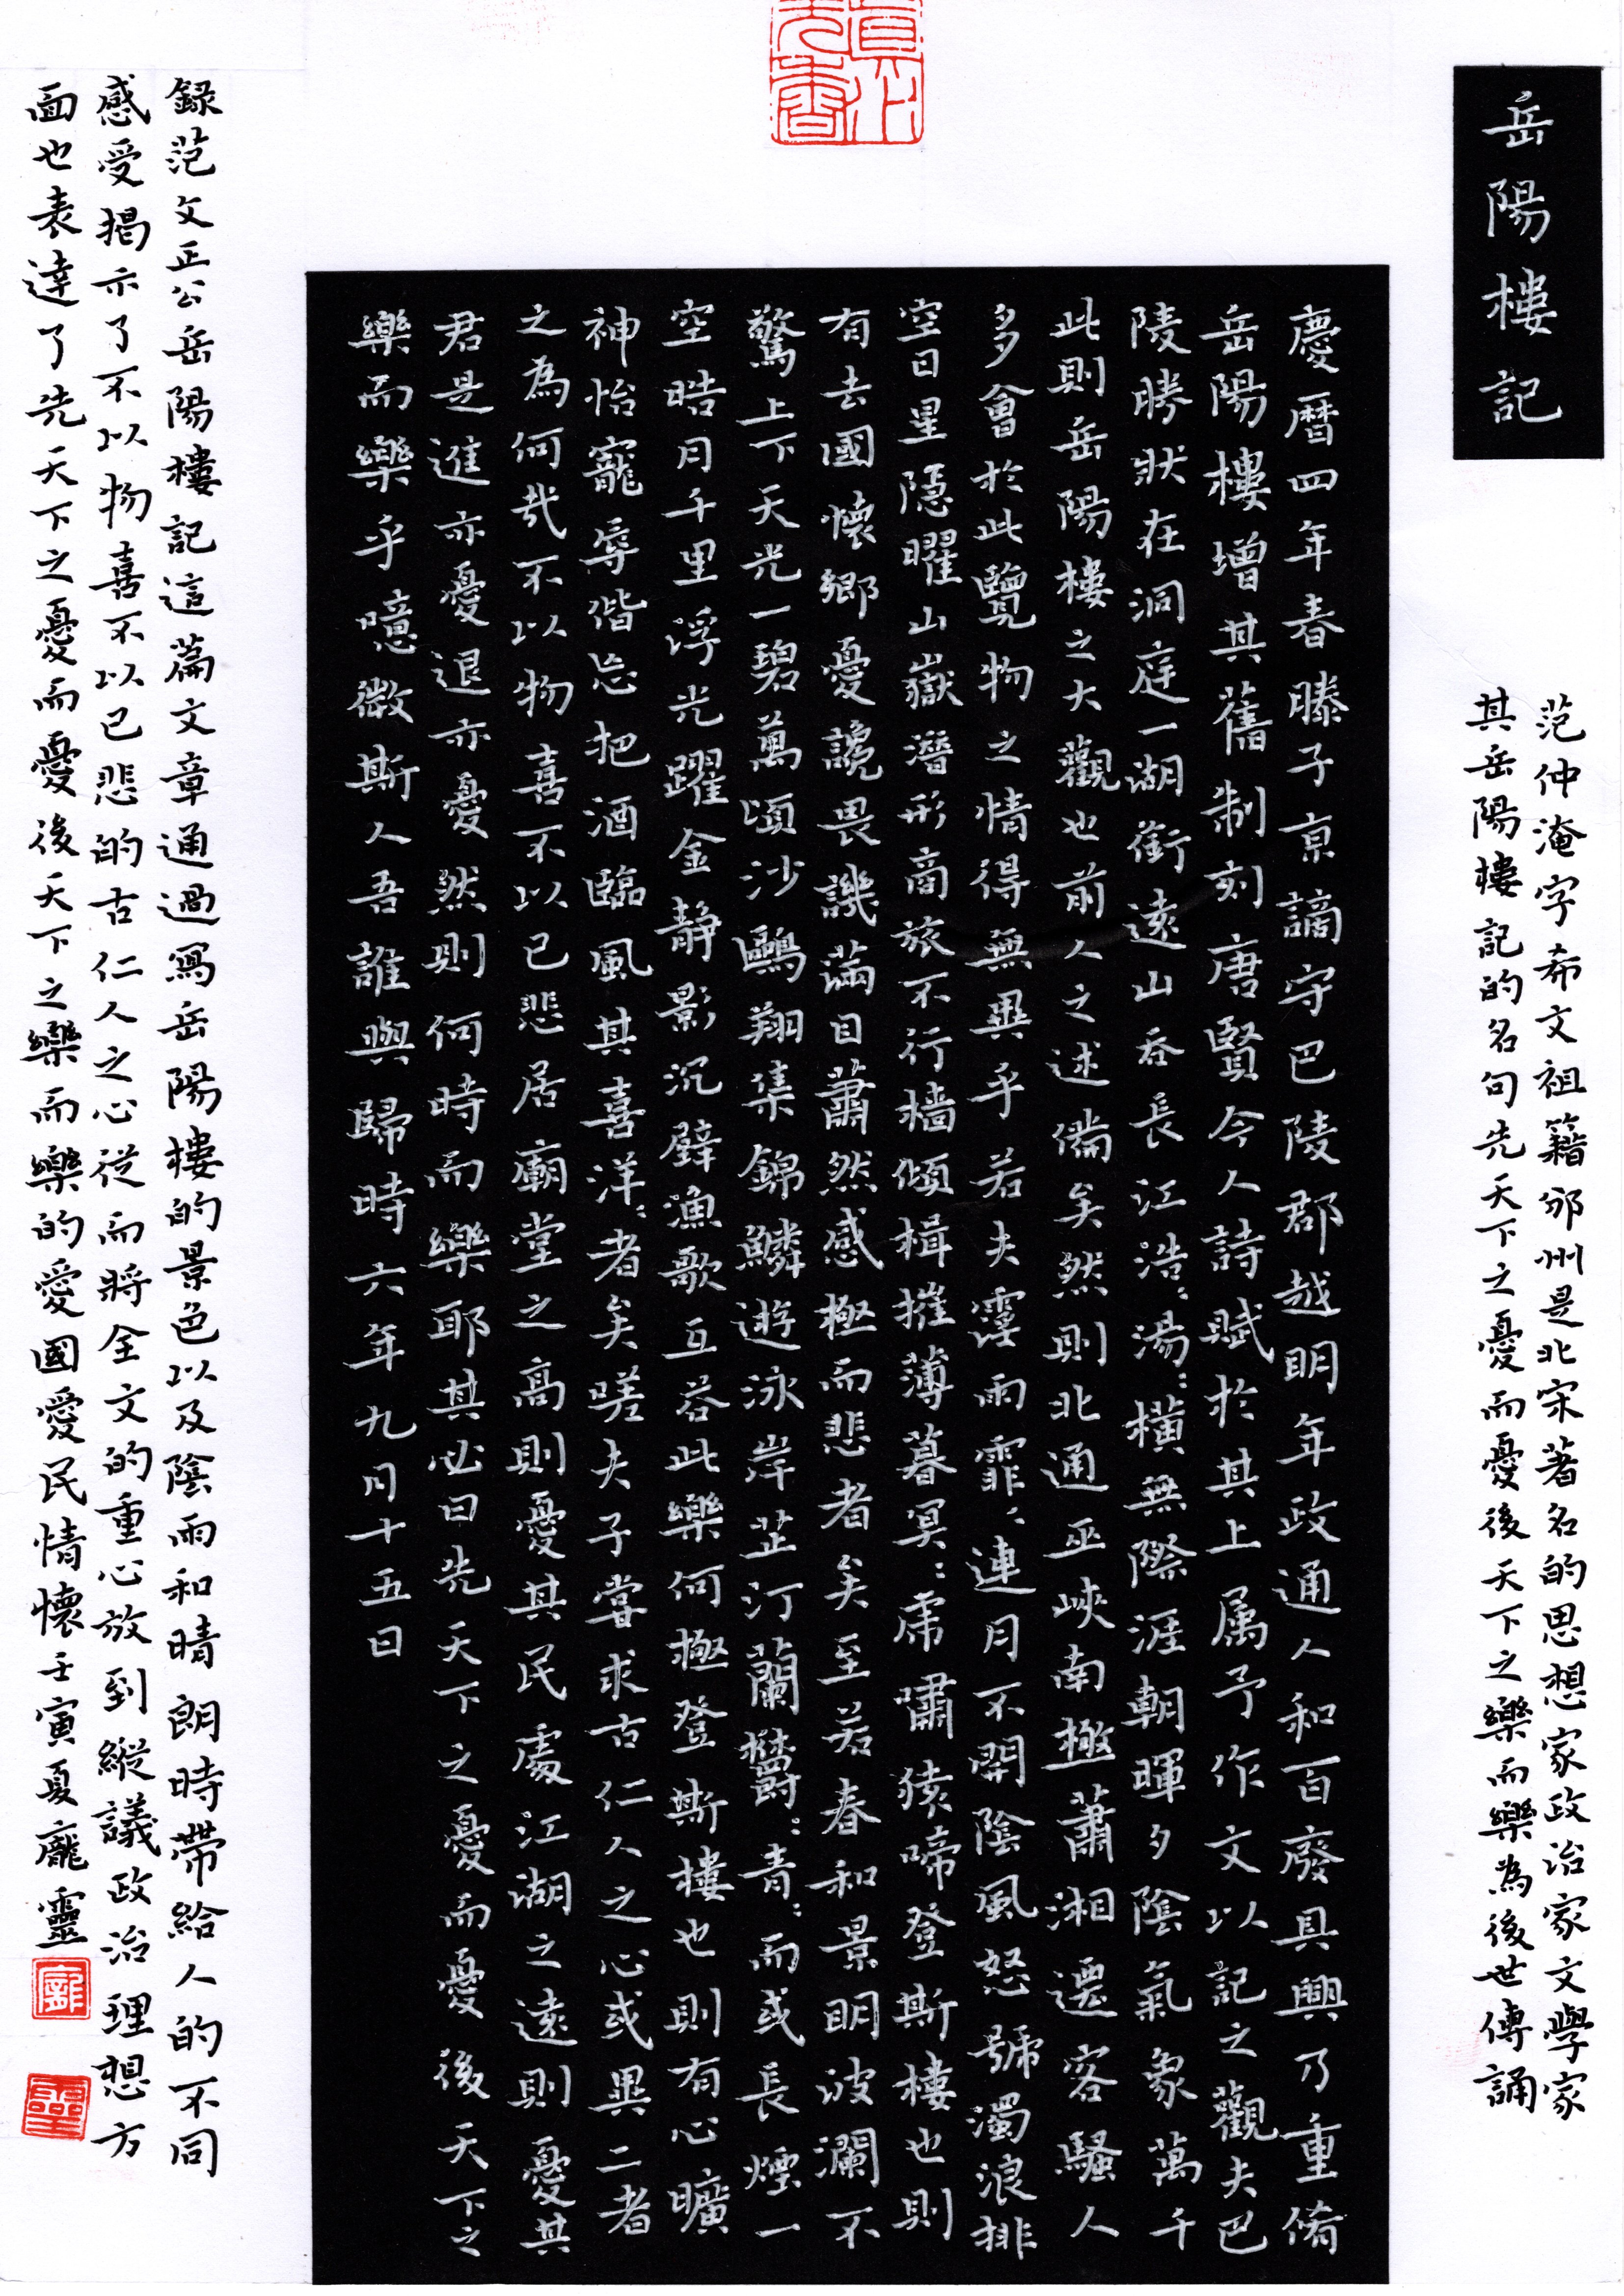 岳陽樓記
范仲淹字希文祖籍邠州是北宋著名的思想家政治家文學家
其岳陽樓記的名句先天下之憂而憂後天下之樂而樂為後世傳誦
慶曆四年春滕子京謫守巴陵郡越明年政通人和百廢具興乃重脩
岳陽樓增其舊制刻唐賢今人詩賦於其上属予作文以記之觀夫巴
陵勝狀在洞庭一湖銜遠山吞長江浩：湯：橫無際涯朝暉夕陰氣象萬千
此則岳陽樓之大觀也前人之述備矣然則北通巫峽南極蕭湘遷客騷人
多會於此覽物之情得無異乎若夫霪雨霏：連月不開陰風怒號濁浪排
空日星隱曜山嶽潛形商旅不行檣傾楫摧薄暮冥：虎嘯猿啼登斯樓也則
有去國懷鄉憂讒畏譏滿目蕭然感極而悲者矣至若春和景明波瀾不
驚上下天光一碧萬頃沙鷗翔集錦鱗遊泳岸芷汀蘭欝：青：而或長煙一
空皓月千里浮光躍金靜影沉璧漁歌互答此樂何極登斯樓也則有心曠
神怡寵辱偕忘把酒臨風其喜洋：者矣嗟夫予嘗求古仁人之心或異二者
之為何哉不以物喜不以己悲居廟堂之高則憂其民處江湖之遠則憂其
君是進亦憂退亦憂然則何時而樂耶其必曰先天下之憂而憂後天下之
樂而樂乎噫微斯人吾誰與歸時六年九月十五日
録范文正公岳陽樓記這篇文章通過寫岳陽樓的景色以及陰雨和晴朗時帶給人的不同
感受揭示了不以物喜不以己悲的古仁人之心從而將全文的重心放到縱議政治理想方
面也表達了先天下之憂而憂後天下之樂而樂的愛國愛民情懷壬寅夏龐靈
龐
靈